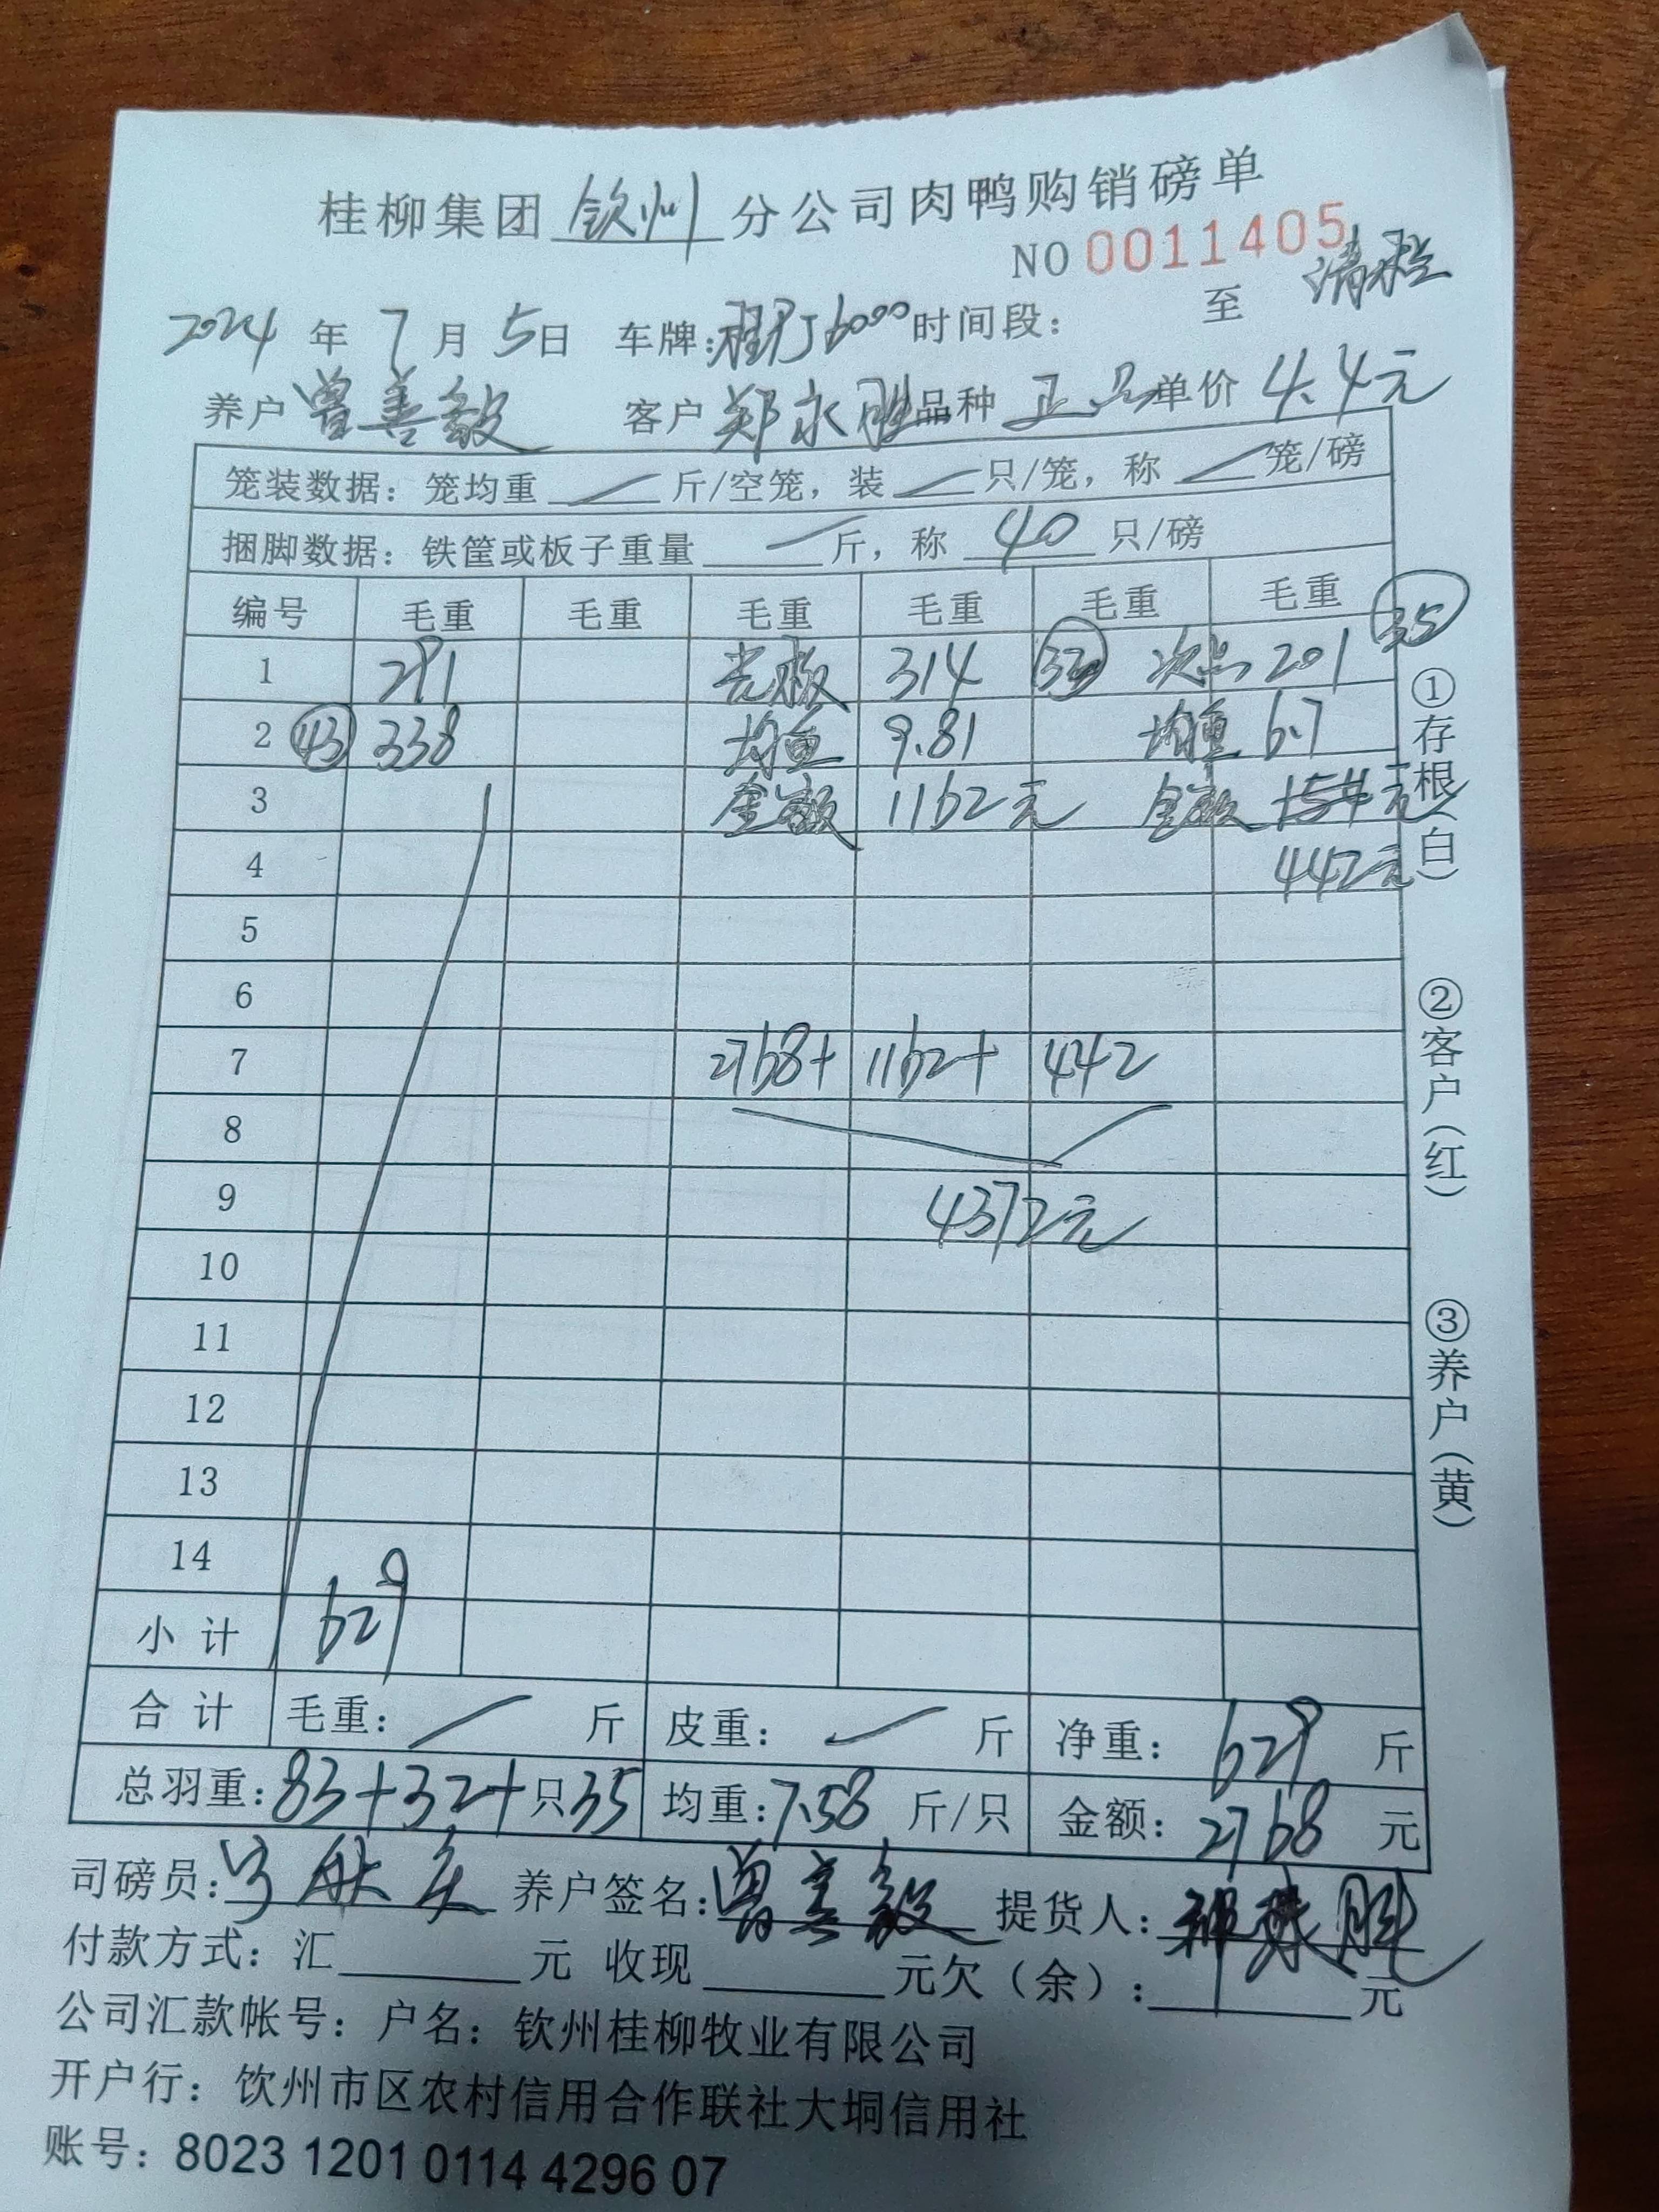 桂柳集团 钦州 分公司肉鸭购销磅单
NO 0011405
清栏
2024 年 7 月 5 日 车牌: 6000 时间段: 至
养户 曾善毅 客户 郑永胜 品种 正品 单价 4.4元
笼装数据: 笼均重 斤/空笼, 装 只/笼, 称 笼/磅
捆脚数据: 铁筐或板子重量 斤, 称 40 只/磅
编号 毛重 毛重 毛重 毛重 毛重 毛重 35
1 291 光板 314 32 次品 201
2 43 338 均重 9.81 均重 6.7
3 金额 1162元 金额 154元
4 442元
5
6
7 2768+ 1162+ 442
8
9 4372元
10
11
12
13
14
小计 629
合计 毛重: 斤 皮重: 斤 净重: 629 斤
总羽重: 83+32+ 只 35 均重: 7.58 斤/只 金额: 2768 元
司磅员: 养户签名: 曾善毅 提货人: 郑永胜
付款方式: 汇 元 收现 元欠(余): 元
公司汇款帐号: 户名: 钦州桂柳牧业有限公司
开户行: 钦州市区农村信用合作联社大垌信用社
账号: 8023 1201 0114 4296 07
①存根(白)
②客户(红)
③养户(黄)